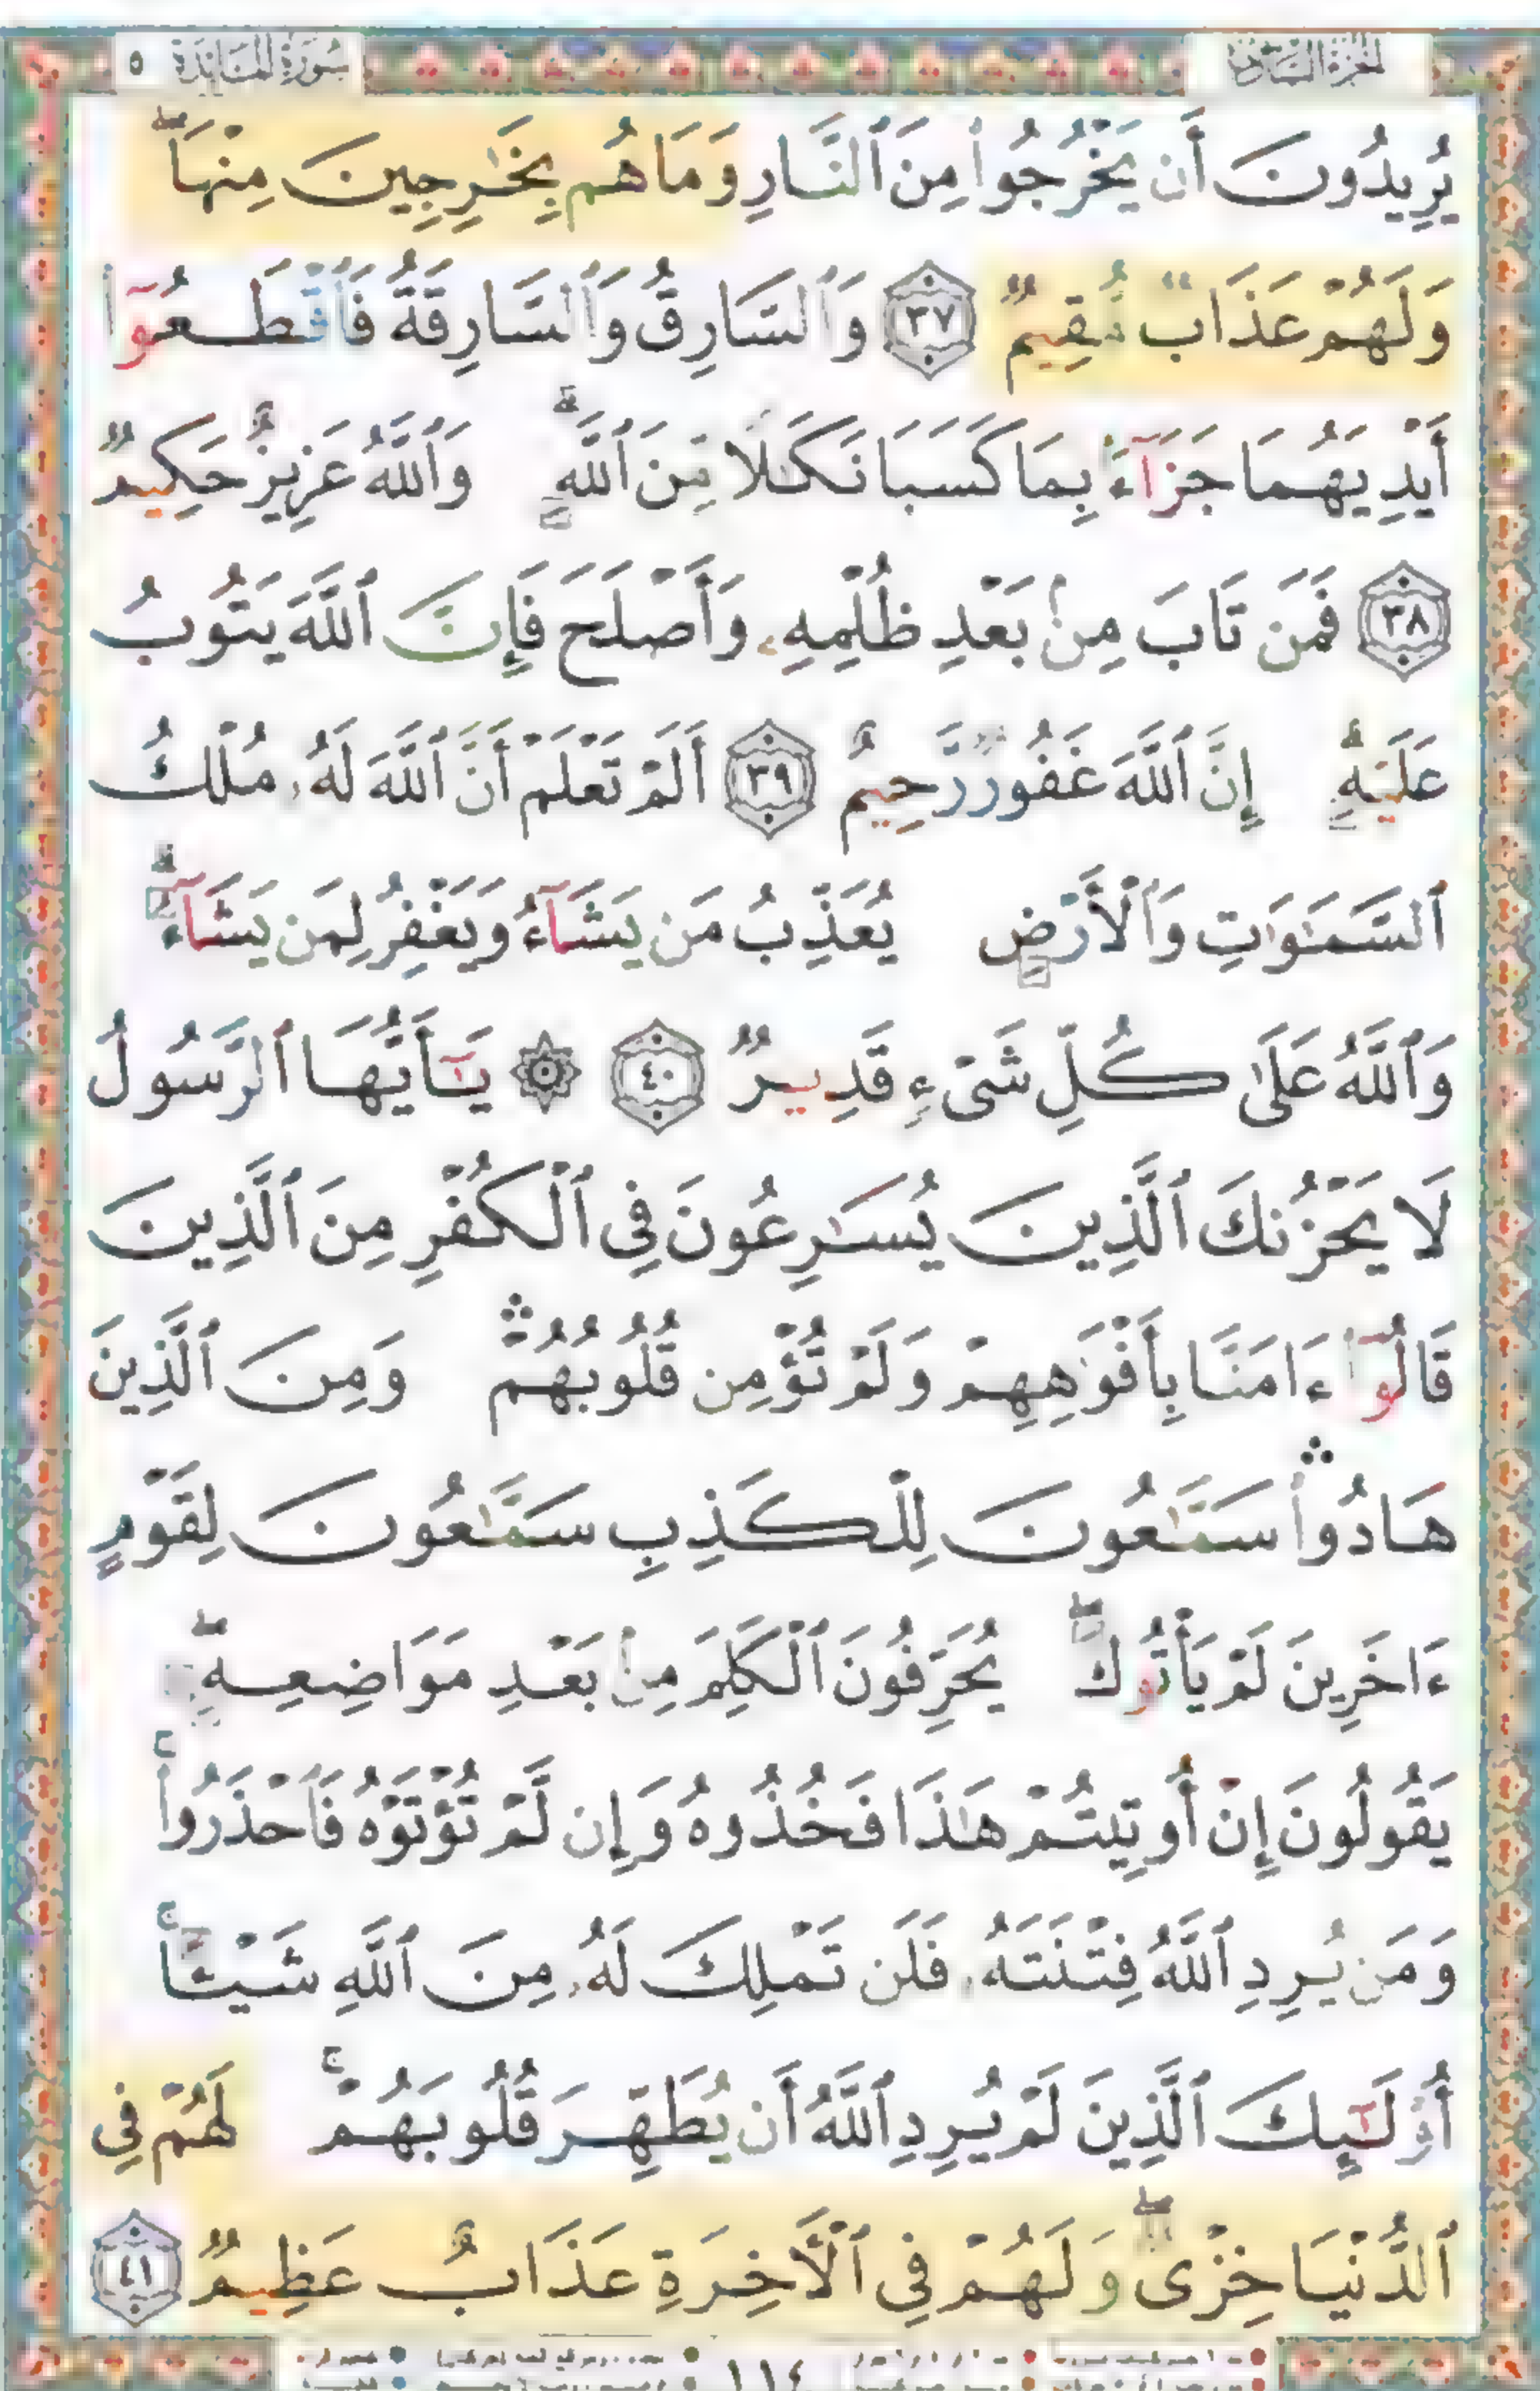 الجزء السادس سورة المائدة ٥
يُرِيدُونَ أَن يَخْرُجُوا۟ مِنَ ٱلنَّارِ وَمَا هُم بِخَٰرِجِينَ مِنْهَا ۖ
وَلَهُمْ عَذَابٌ مُّقِيمٌ ٣٧ وَٱلسَّارِقُ وَٱلسَّارِقَةُ فَٱقْطَعُوٓا۟
أَيْدِيَهُمَا جَزَآءًۢ بِمَا كَسَبَا نَكَٰلًا مِّنَ ٱللَّهِ ۗ وَٱللَّهُ عَزِيزٌ حَكِيمٌ
٣٨ فَمَن تَابَ مِنۢ بَعْدِ ظُلْمِهِۦ وَأَصْلَحَ فَإِنَّ ٱللَّهَ يَتُوبُ
عَلَيْهِ ۗ إِنَّ ٱللَّهَ غَفُورٌ رَّحِيمٌ ٣٩ أَلَمْ تَعْلَمْ أَنَّ ٱللَّهَ لَهُۥ مُلْكُ
ٱلسَّمَٰوَٰتِ وَٱلْأَرْضِ يُعَذِّبُ مَن يَشَآءُ وَيَغْفِرُ لِمَن يَشَآءُ ۗ
وَٱللَّهُ عَلَىٰ كُلِّ شَىْءٍ قَدِيرٌ ٤٠ ۞ يَٰٓأَيُّهَا ٱلرَّسُولُ
لَا يَحْزُنكَ ٱلَّذِينَ يُسَٰرِعُونَ فِى ٱلْكُفْرِ مِنَ ٱلَّذِينَ
قَالُوٓا۟ ءَامَنَّا بِأَفْوَٰهِهِمْ وَلَمْ تُؤْمِن قُلُوبُهُمْ ۛ وَمِنَ ٱلَّذِينَ
هَادُوا۟ ۛ سَمَّٰعُونَ لِلْكَذِبِ سَمَّٰعُونَ لِقَوْمٍ
ءَاخَرِينَ لَمْ يَأْتُوكَ ۖ يُحَرِّفُونَ ٱلْكَلِمَ مِنۢ بَعْدِ مَوَاضِعِهِۦ ۖ
يَقُولُونَ إِنْ أُوتِيتُمْ هَٰذَا فَخُذُوهُ وَإِن لَّمْ تُؤْتَوْهُ فَٱحْذَرُوا۟ ۚ
وَمَن يُرِدِ ٱللَّهُ فِتْنَتَهُۥ فَلَن تَمْلِكَ لَهُۥ مِنَ ٱللَّهِ شَيْـًٔا ۚ
أُو۟لَٰٓئِكَ ٱلَّذِينَ لَمْ يُرِدِ ٱللَّهُ أَن يُطَهِّرَ قُلُوبَهُمْ ۚ لَهُمْ فِى
ٱلدُّنْيَا خِزْىٌ ۖ وَلَهُمْ فِى ٱلْأَخِرَةِ عَذَابٌ عَظِيمٌ ٤١
١١٤